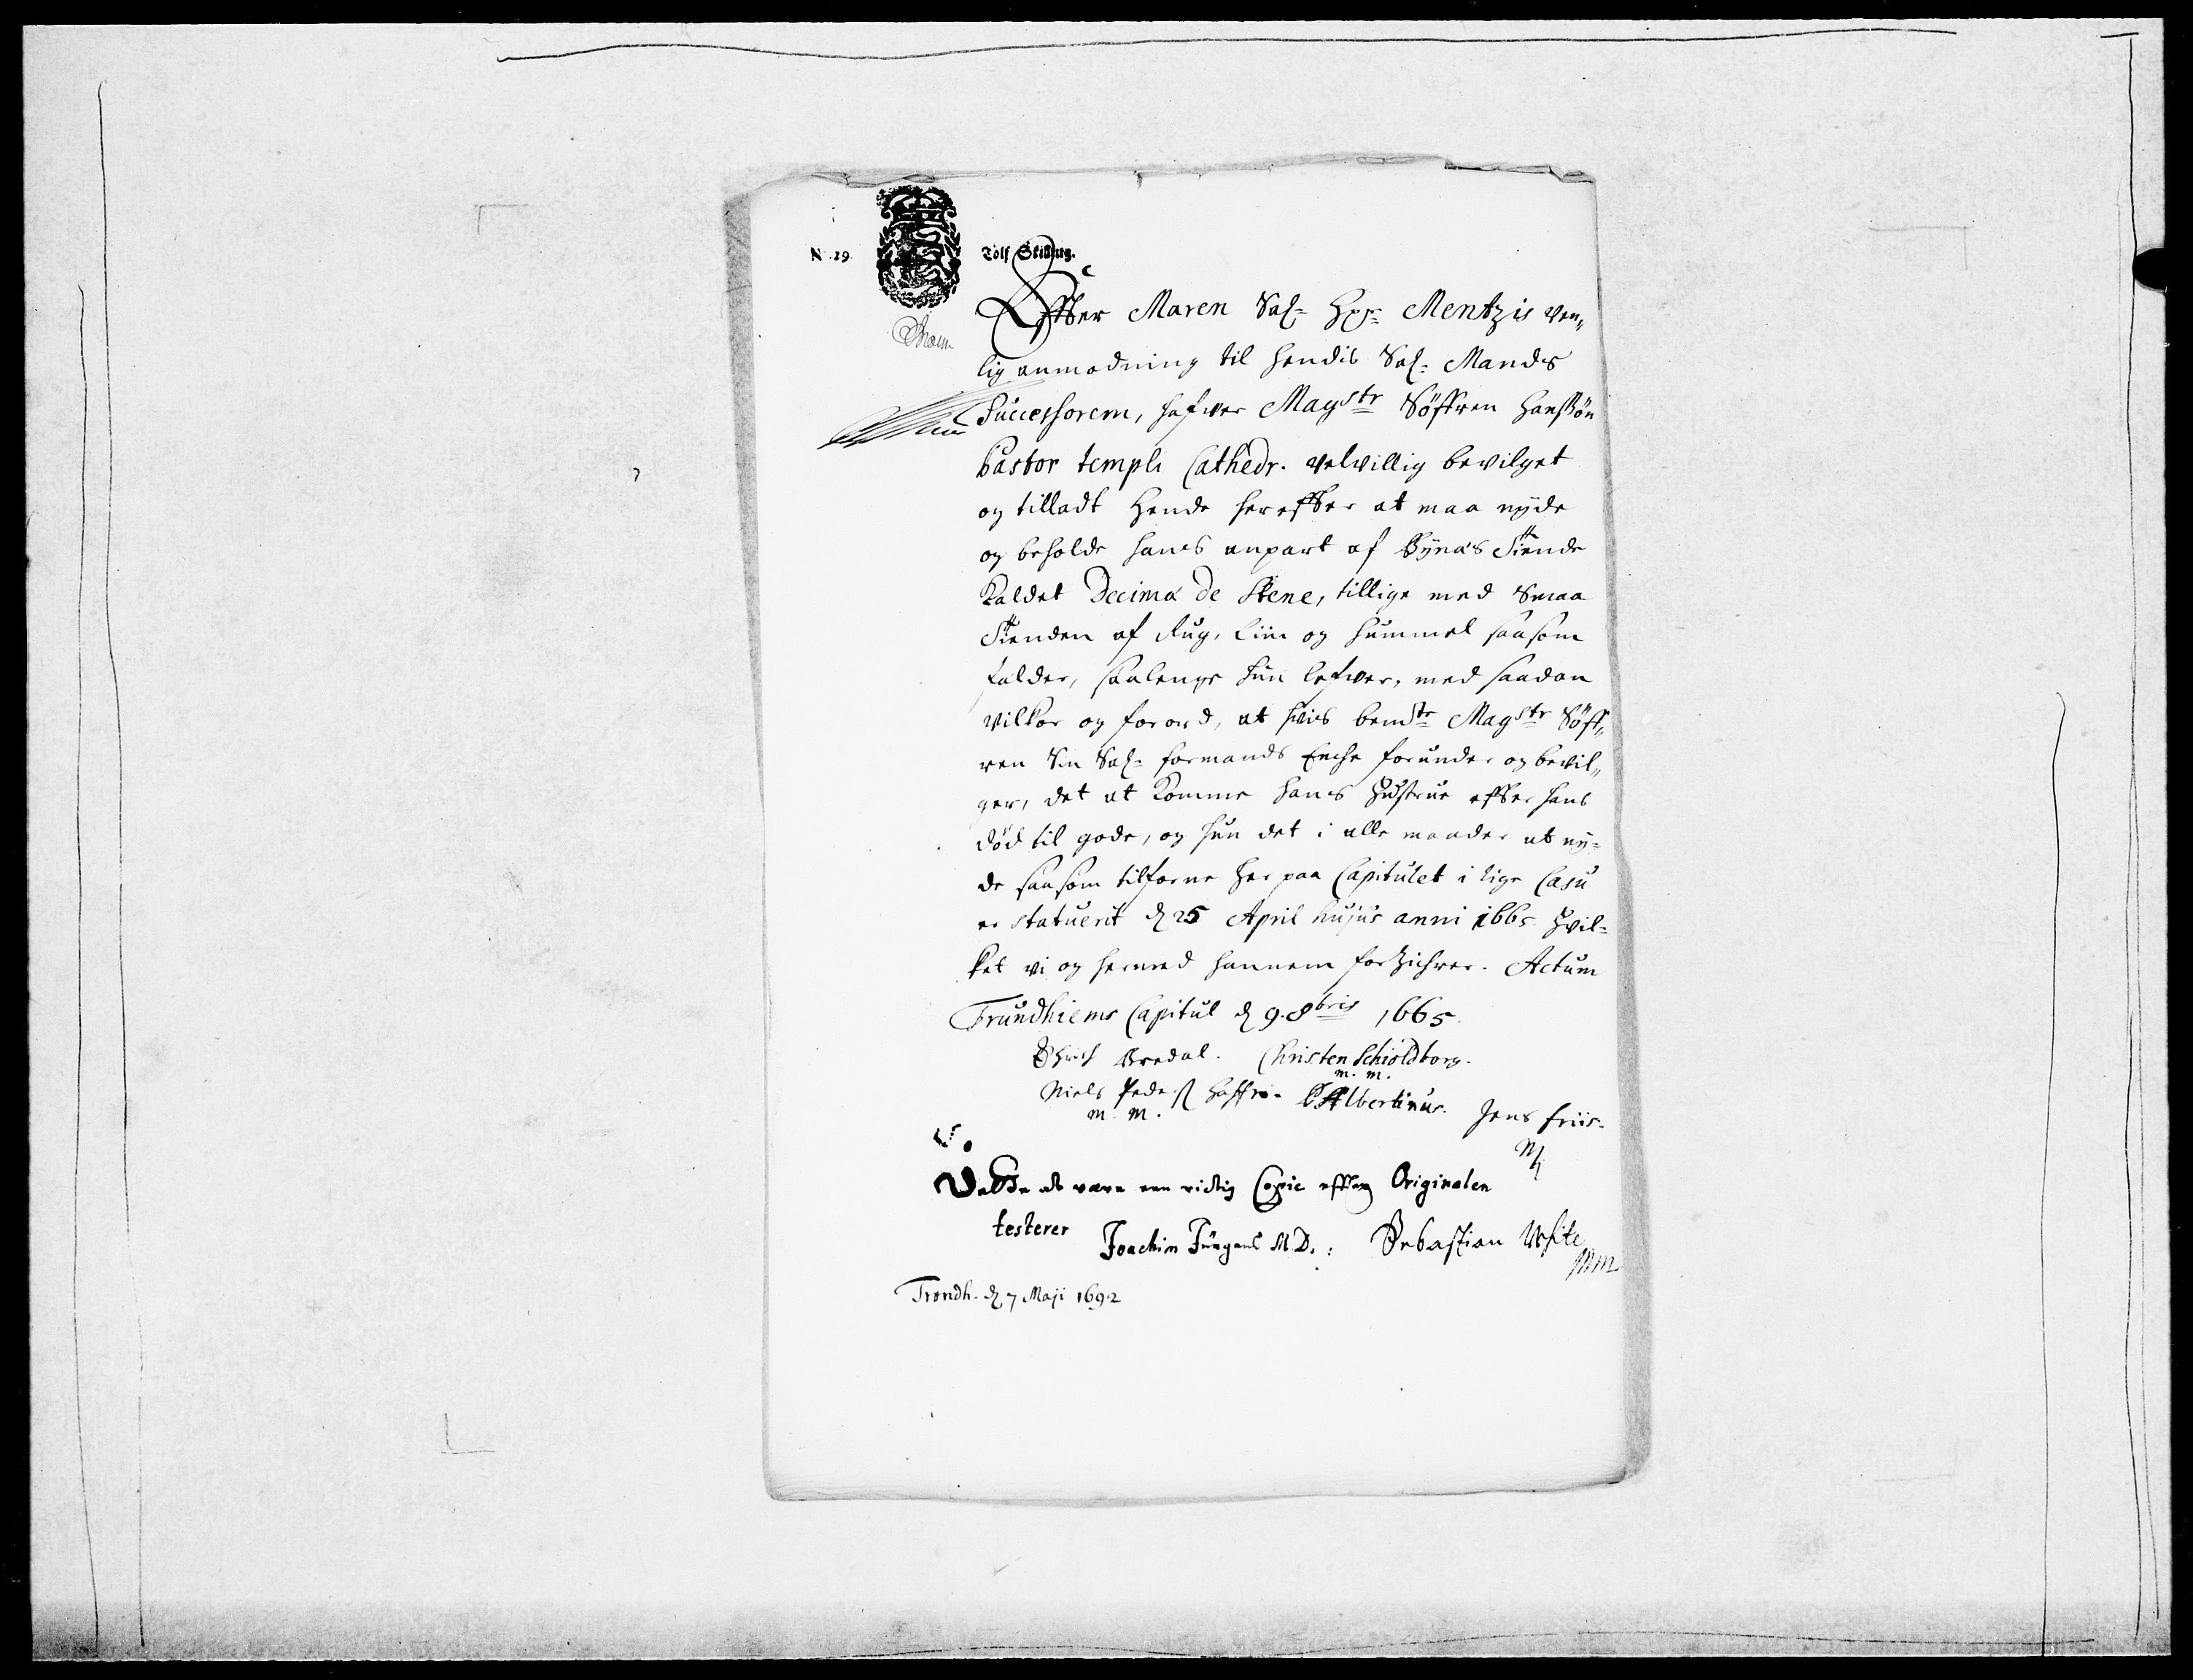 N. 29. Tolf Skilling.
Effter Maren Sal= Hr= Mentzis ven„
lig anmodning til hendis Sal= Mands
Successorem, hafver Magstr Söffren Hansøn
Pastor templi Cathedr. velvillig bevilget
og tilladt Hende hereffter at maa nyde
og beholde hans anpart af Bynæs Tiende
Kaldet Decima de Skene, tillige med Smaa
Tienden af Rug, Liin og Hummel saasom
falder, saalenge hun lefver, med saadan
vilkor og forord, at hvis bemte Magstr Söff„
ren Sin Sal= formands Enche forunder og bevil„
ger, det at komme hans Hustrue effter hans
död til gode, og hun det i alle maader at ny=
de saasom tilforne her paa Capitulet i lige Casu
er statuerit d 25 April hujus anni 1665 Hvil=
ket vi og hermed hannem forsichrer. Actum
Trundhiems Capitul d 9. 8bris 1665.
Erich Bredal. Christen Schiöldborg.
m. m.
Niels Peders. C Albertinus. Jens Friis.
m. m.
Dette at være een rictig Copie effter Originalen
testerer Joachim Jürgens M.D.: Sebastian White
mm
Trondh. d 7 Maji 1692